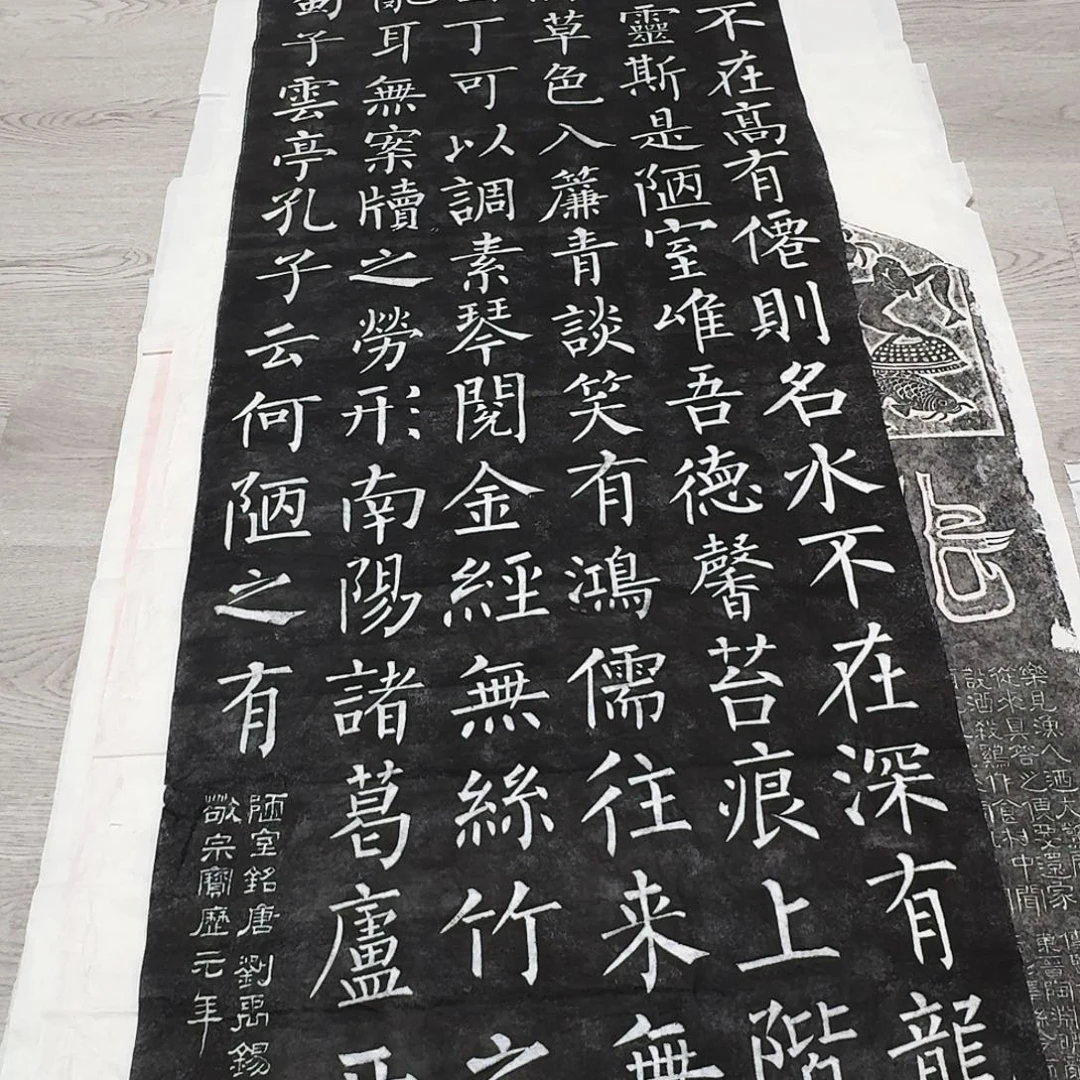 不在高有僊則名水不在深有龍
靈斯是陋室唯吾德馨苔痕上階
草色入簾青談笑有鴻儒往来無
丁可以調素琴閱金經無絲竹之
亂耳無案牘之勞形南陽諸葛廬西
蜀子雲亭孔子云何陋之有
陋室銘唐劉禹錫
敬宗寶歷元年
樂見漁人
從來具答之便要還家
設酒殺鷄作食村中聞